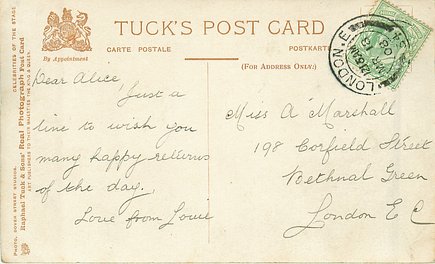 TUCK'S POST CARD
CARTE POSTALE
POSTKARTE
By Appointment
(FOR ADDRESS ONLY.)
CELEBRITIES OF THE STAGE
Raphael Tuck & Sons' Real Photograph Post Card
ART PUBLISHERS TO THEIR MAJESTIES THE KING & QUEEN.
PHOTO. DOVER STREET STUDIOS.
LONDON. E.
MR 13
08
Dear Alice
Just a
line to wish you
many happy returns
of the day.
Love from Louie
Miss A Marshall
198 Corfield Street
Bethnal Green
London E C